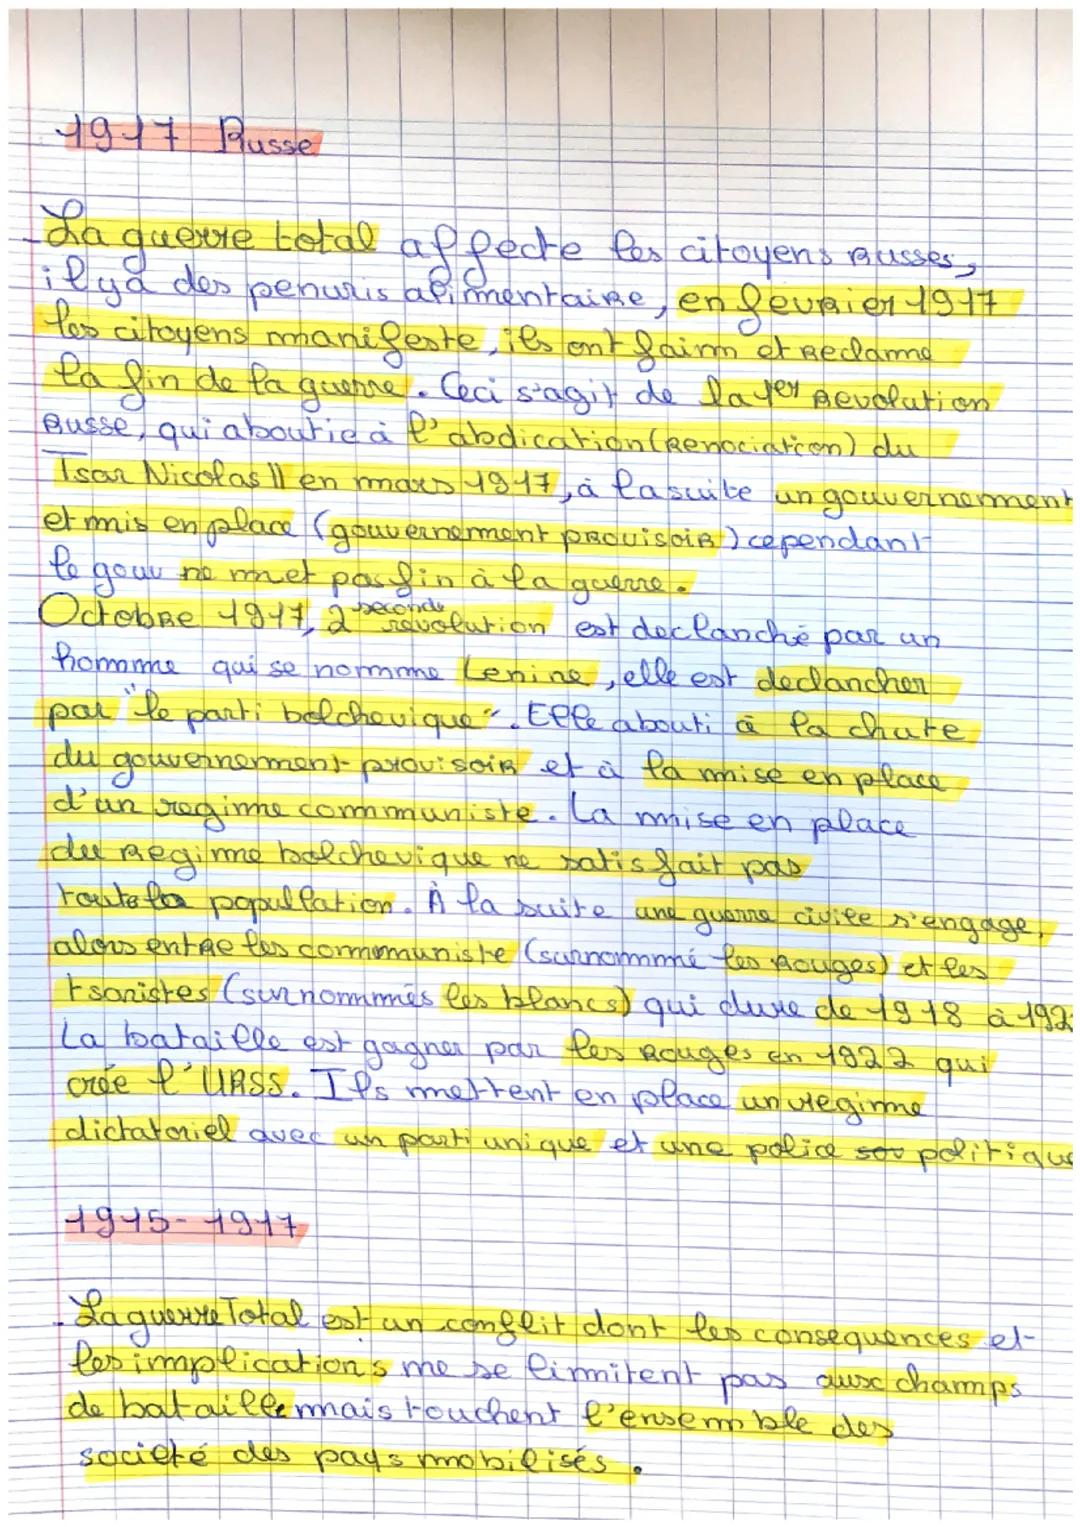 1917 Russe
La guerre total affecte les citoyens Russes,
il y a des penuris alimentaire, en fevrier 1917
les citoyens manifeste, ils ont faim et Reclame
la fin de la guerre. Ceci s'agit de la 1er Revolution
Russe, qui aboutie à l'abdication (Renociation) du
Tsar Nicolas II en mars 1917, à la suite un gouvernement
et mis en place (gouvernement provisoir) cependant
le gouv ne met pas fin à la guerre.
Octobre 1917, 2 seconde revolution est declanché par un
homme qui se nomme Lenine, elle est declancher
par "le parti bolchevique". Elle abouti à la chute
du gouvernement provisoir et à la mise en place
d'un regime communiste. La mise en place
du Regime bolchevique ne satisfait pas
toute la population. À la suite une guerre civile s'engage,
alors entre les communiste (surnommé les Rouges) et les
tsaristes (surnommés les blancs) qui dure de 1918 à 192
La bataille est gagner par les Rouges en 1922 qui
crée l'URSS. Ils mettent en place un regime
dictatoriel avec un parti unique et une police politique
1915-1917
La guerre Total est un conflit dont les consequences et
les implications me se limitent pas aux champs
de bataille mais touchent l'ensemble des
societé des pays mobilisés.